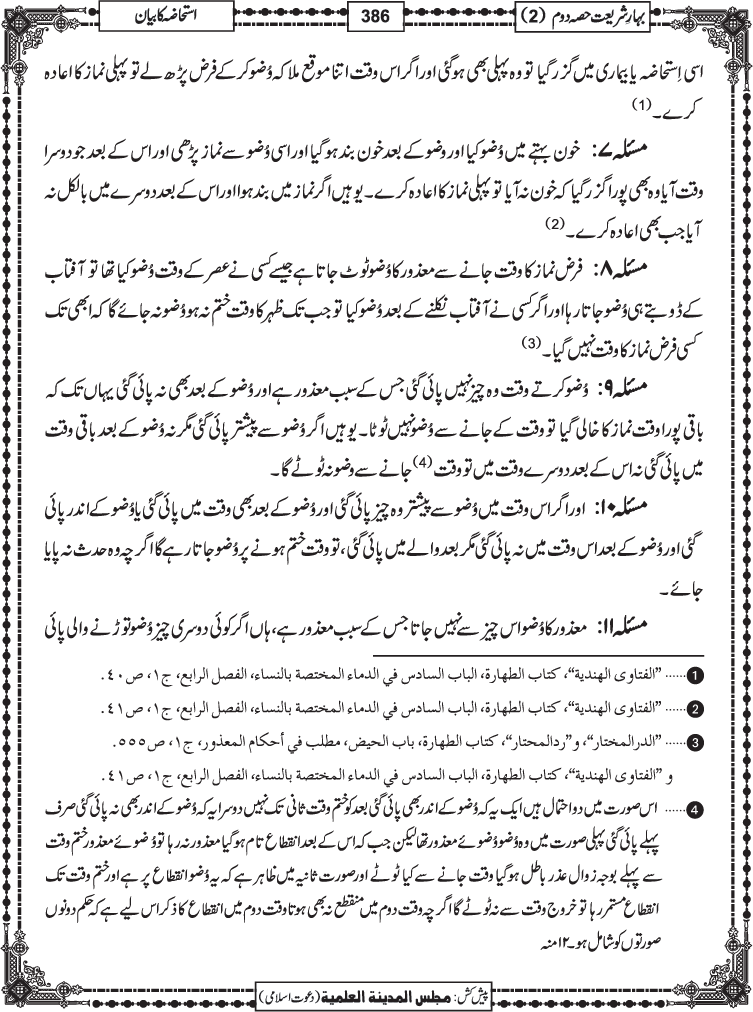 بہار شریعت حصہ دوم (2)
386
استحاضہ کا بیان
اسی اِستحاضہ یا بیماری میں گزر گیا تو وہ پہلی بھی ہوگئی اور اگر اس وقت اتنا موقع ملا کہ وُضو کر کے فرض پڑھ لے تو پہلی نماز کا اعادہ
کرے۔ (1)
مسئلہ ۷: خون بہتے میں وُضو کیا اور وضو کے بعد خون بند ہوگیا اور اسی وُضو سے نماز پڑھی اور اس کے بعد جو دوسرا
وقت آیا وہ بھی پورا گزر گیا کہ خون نہ آیا تو پہلی نماز کا اعادہ کرے۔ یوہیں اگر نماز میں بند ہوا اور اس کے بعد دوسرے میں بالکل نہ
آیا جب بھی اعادہ کرے۔ (2)
مسئلہ ۸: فرض نماز کا وقت جانے سے معذور کا وُضو ٹوٹ جاتا ہے جیسے کسی نے عصر کے وقت وُضو کیا تھا تو آفتاب
کے ڈوبتے ہی وُضو جاتا رہا اور اگر کسی نے آفتاب نکلنے کے بعد وُضو کیا تو جب تک ظہر کا وقت ختم نہ ہو وُضو نہ جائے گا کہ ابھی تک
کسی فرض نماز کا وقت نہیں گیا۔ (3)
مسئلہ ۹: وُضو کرتے وقت وہ چیز نہیں پائی گئی جس کے سبب معذور ہے اور وُضو کے بعد بھی نہ پائی گئی یہاں تک کہ
باقی پورا وقت نماز کا خالی گیا تو وقت کے جانے سے وُضو نہیں ٹوٹا۔ یوہیں اگر وُضو سے پیشتر پائی گئی مگر نہ وُضو کے بعد باقی وقت
میں پائی گئی نہ اس کے بعد دوسرے وقت میں تو وقت (4) جانے سے وضو نہ ٹوٹے گا۔
مسئلہ ۱۰: اور اگر اس وقت میں وُضو سے پیشتر وہ چیز پائی گئی اور وُضو کے بعد بھی وقت میں پائی گئی یا وُضو کے اندر پائی
گئی اور وُضو کے بعد اس وقت میں نہ پائی گئی مگر بعد والے میں پائی گئی، تو وقت ختم ہونے پر وُضو جاتا رہے گا اگرچہ وہ حدث نہ پایا
جائے۔
مسئلہ ۱۱: معذور کا وُضو اس چیز سے نہیں جاتا جس کے سبب معذور ہے، ہاں اگر کوئی دوسری چیز وُضو توڑنے والی پائی
1 ...... ”الفتاوی الهندية“، كتاب الطهارة، الباب السادس في الدماء المختصة بالنساء، الفصل الرابع، ج١، ص٤٠.
2 ...... ”الفتاوی الهندية“، كتاب الطهارة، الباب السادس في الدماء المختصة بالنساء، الفصل الرابع، ج١، ص٤١.
3 ...... ”الدرالمختار“، و ”ردالمحتار“، كتاب الطهارة، باب الحيض، مطلب في أحكام المعذور، ج١، ص٥٥٥.
و ”الفتاوی الهندية“، كتاب الطهارة، الباب السادس في الدماء المختصة بالنساء، الفصل الرابع، ج١، ص٤١.
4 ...... اس صورت میں دو احتمال ہیں ایک یہ کہ وُضو کے اندر بھی پائی گئی بعد کو ختم وقت ثانی تک نہیں دوسرا یہ کہ وُضو کے اندر بھی نہ پائی گئی صرف
پہلے پائی گئی پہلی صورت میں وہ وُضو وُضوئے معذور تھا لیکن جب کہ اس کے بعد انقطاع تام ہوگیا معذور نہ رہا تو وُضوئے معذور ختم وقت
سے پہلے بوجہ زوال عذر باطل ہوگیا وقت جانے سے کیا ٹوٹے اور صورت ثانیہ میں ظاہر ہے کہ یہ وُضو انقطاع پر ہے اور ختم وقت تک
انقطاع مستمر رہا تو خروج وقت سے نہ ٹوٹے گا اگرچہ وقت دوم میں منقطع نہ بھی ہوتا وقت دوم میں انقطاع کا ذکر اس لیے ہے کہ حکم دونوں
صورتوں کو شامل ہو۔ ۱۲ منہ
پیش کش: مجلس المدينة العلمية (دعوت اسلامی)